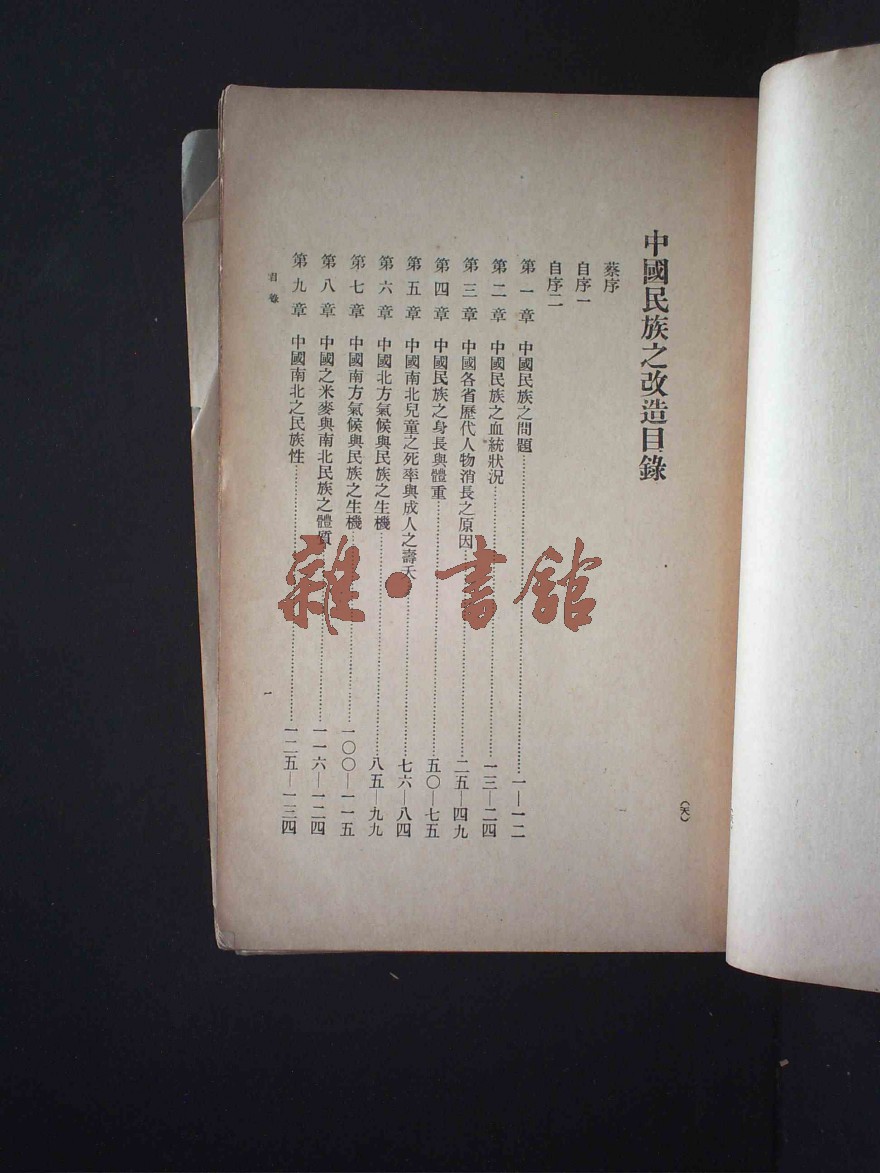 中國民族之改造目錄
蔡序
自序一
自序二
第一章 中國民族之問題……一—一二
第二章 中國民族之血統狀況……一三—二四
第三章 中國各省歷代人物消長之原因……二五—四九
第四章 中國民族之身長與體重……五〇—七五
第五章 中國南北兒童之死率與成人之壽夭……七六—八四
第六章 中國北方氣候與民族之生機……八五—九九
第七章 中國南方氣候與民族之生機……一〇〇—一一五
第八章 中國之米麥與南北民族之體質……一一六—一二四
第九章 中國南北之民族性……一二五—一三四
目錄
一
(天)
雜·書館